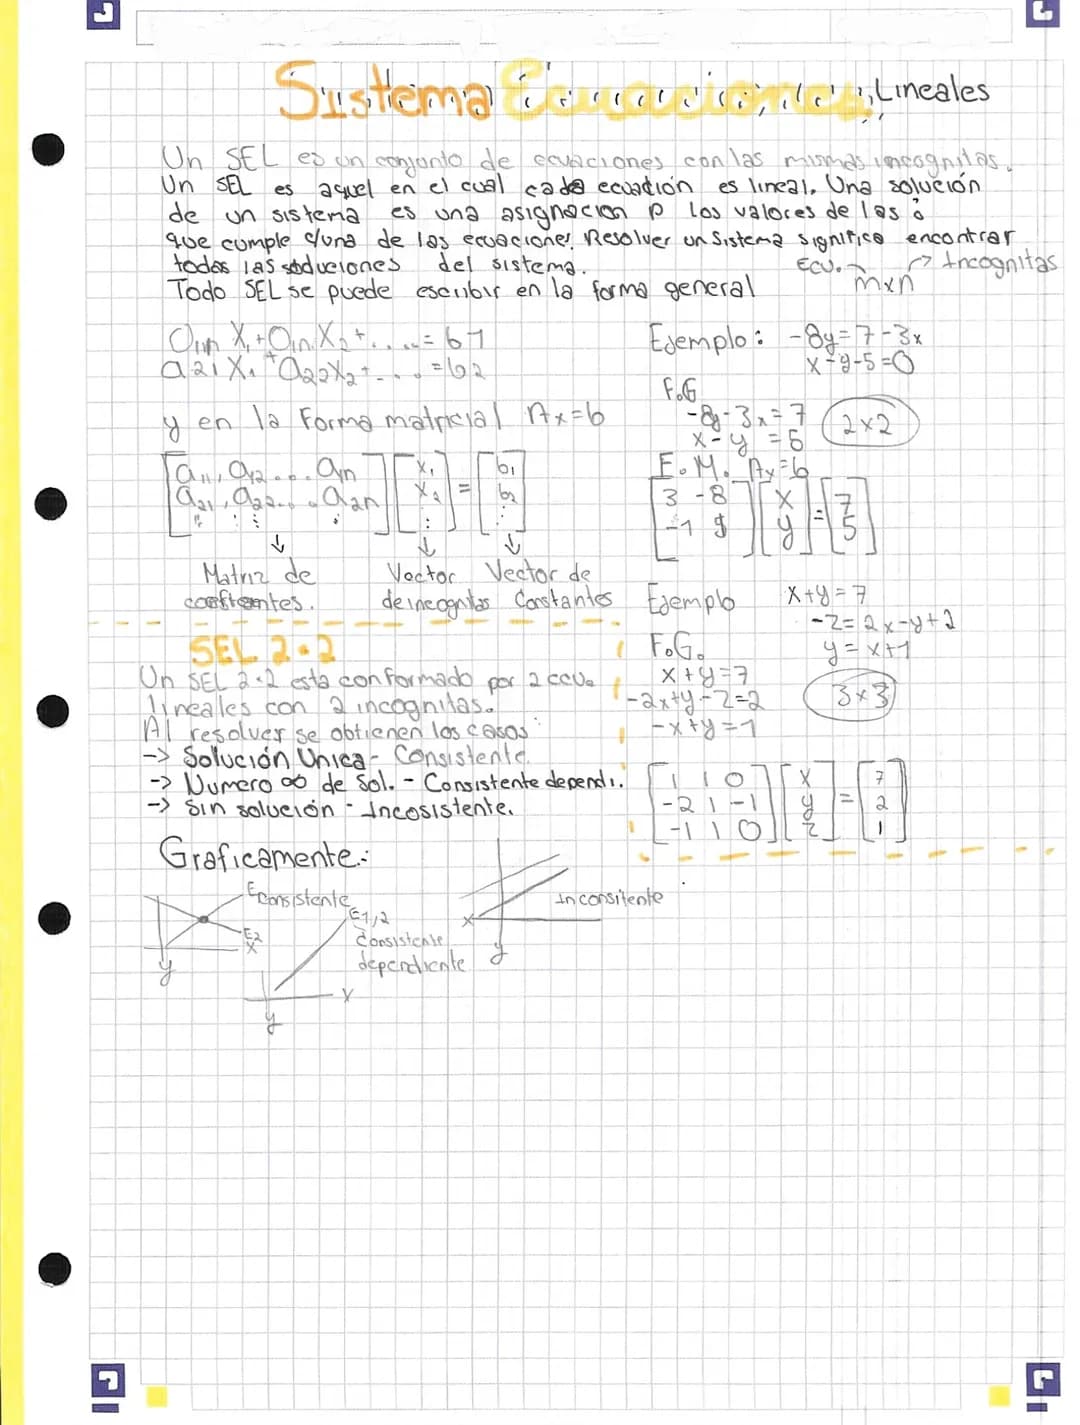 Sistema Ecuaciones Lineales
Un SEL es un conjunto de ecuaciones con las mismas incognitas.
Un SEL es aquel en el cual cada ecuación es lineal. Una solución
de un sistema es una asignacion p los valores de las
que cumple c/una de las ecuaciones. Resolver un sistema significa encontrar
todas las soluciones del sistema.
Todo SEL se puede escribir en la forma general
Ecu. Incognitas
mxn
X₁ + X₂ + .... = b1
a21 X₁ + a22X₂ + ... = b2
y en la Forma matricial Ax=b
[a₁₁, a₁₂ ... a₁n] [x₁] = [b₁]
[a₂₁, a₂₂ ... a₂n] [x₂] [b₂]
Matriz de
coeficientes.
Vector
de incognitas
Vector de
Constantes
Ejemplo: -8y=7-3x
x-y-5=0
F.G
-8y-3x=7
x-y =5
2x2
E.M. Ax=b
[3 -8] [x] = [7]
[-1 ] [y] [5]
Ejemplo x+y=7
-z=2x-y+2
y=x+1
F.G.
x+y=7
-2x+y-z=2
-x+y=1
3x3
[1 1 0] [x] = [7]
[-2 1 -1] [y] [2]
[-1 1 0] [z] [1]
SEL 2·2
Un SEL 2·2 esta conformado por 2 ecu.
lineales con 2 incognitas.
Al resolver se obtienen los casos:
-> Solución Unica - Consistente.
-> Numero ∞ de Sol. - Consistente dependi.
-> Sin solución - Incosistente.
Graficamente:
E consistente
E2
x
y
E1,2
Consistente
dependiente
x
y
Inconsitente
x
y